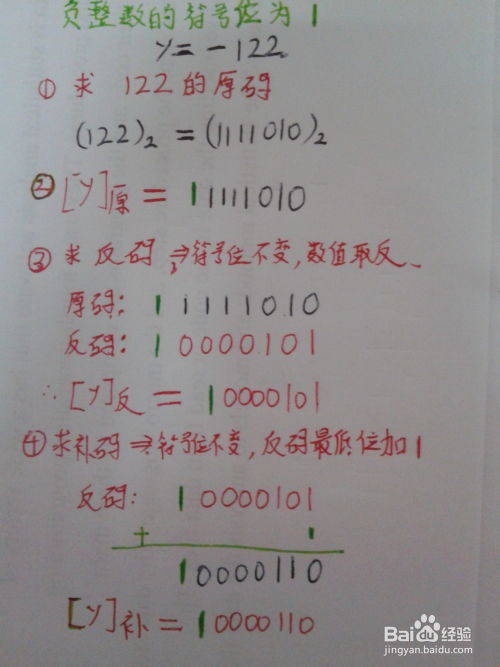 负整数的符号位为1
y=-122。
① 求 122 的原码
(122)₂ = (1111010)₂
② [y]原 = 11111010
③ 求反码 ⇒ 符号位不变,数值取反、
原码: 1 1111010
反码: 1 0000101
∴ [y]反 = 10000101
④ 求补码 ⇒ 符号位不变,反码最低位加1
反码: 1 0000101
+ 1
10000110
[y]补 = 10000110
Baidu经验
jingyan.baidu.com